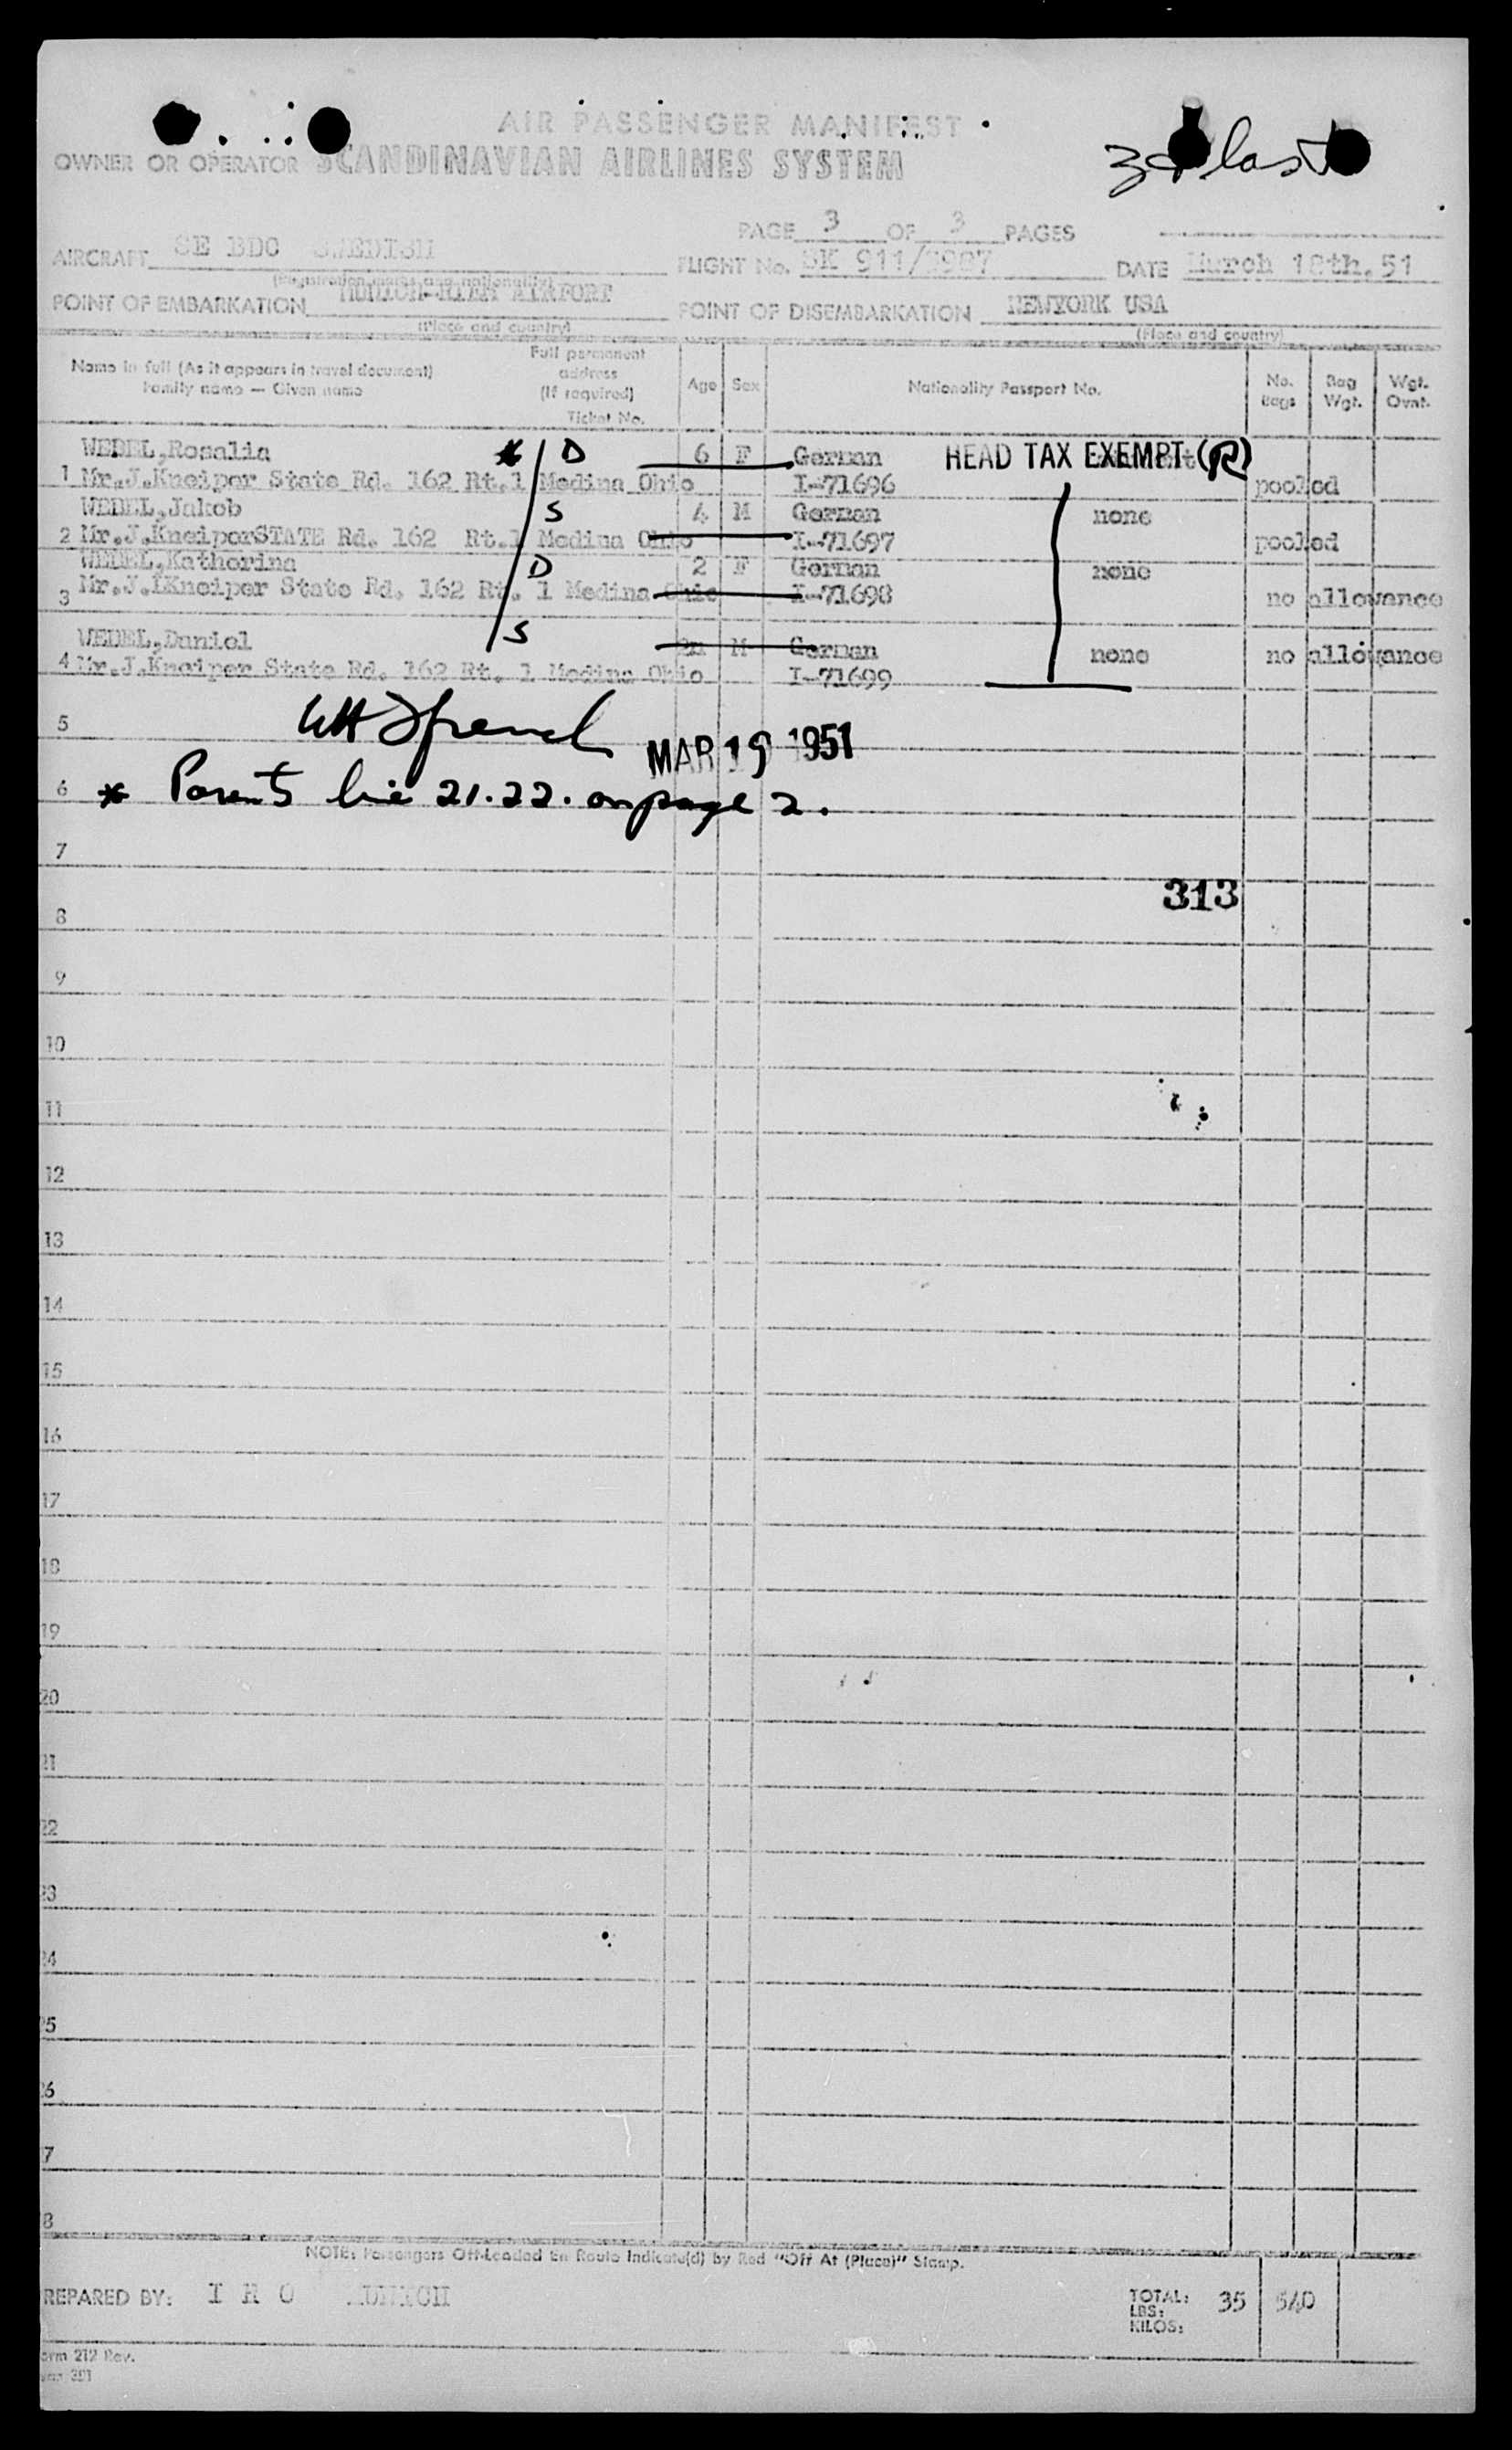 AIR PASSENGER MANIFEST
OWNER OR OPERATOR SCANDINAVIAN AIRLINES SYSTEM
3d last
PAGE 3 OF 3 PAGES
AIRCRAFT SE BDC SWEDISH FLIGHT No. SK 911/ DATE March 18th.51
(Registration marks and nationality)
POINT OF EMBARKATION MUNICH-RIEM AIRPORT POINT OF DISEMBARKATION NEWYORK USA
(Place and country) (Place and country)
Name in full (As it appears in travel document) Family name — Given name Full permanent address (If required) Ticket No. Age Sex Nationality Passport No. No. Bags Bag Wgt. Wgt. Ovnt.
WEDEL,Rosalia * D 6 F German HEAD TAX EXEMPT (R)
1 Mr.J.Kneiper State Rd. 162 Rt.1 Medina Ohio I-71696 pooled
WEDEL,Jakob S 4 M German none
2 Mr.J.KneiperSTATE Rd. 162 Rt.1 Medina Ohio I-71697 pooled
WEDEL,Katherina D 2 F German none
3 Mr.J.IKneiper State Rd. 162 Rt. 1 Medina Ohio I-71698 no allowance
WEDEL,Daniel S M German none no allowance
4 Mr.J.Kneiper State Rd. 162 Rt. 1 Medina Ohio I-71699
5 MAR 19 1951
6 * Parents line 21.22. on page 2.
7
313
8
9
10
11
12
13
14
15
16
17
18
19
20
21
22
23
24
25
26
7
8
NOTE: Passengers Off-Loaded En Route Indicate(d) by Red "Off At (Place)" Stamp.
REPARED BY: I R O MUNICH TOTAL: 35 540
LBS:
KILOS:
orm 212 Rev.